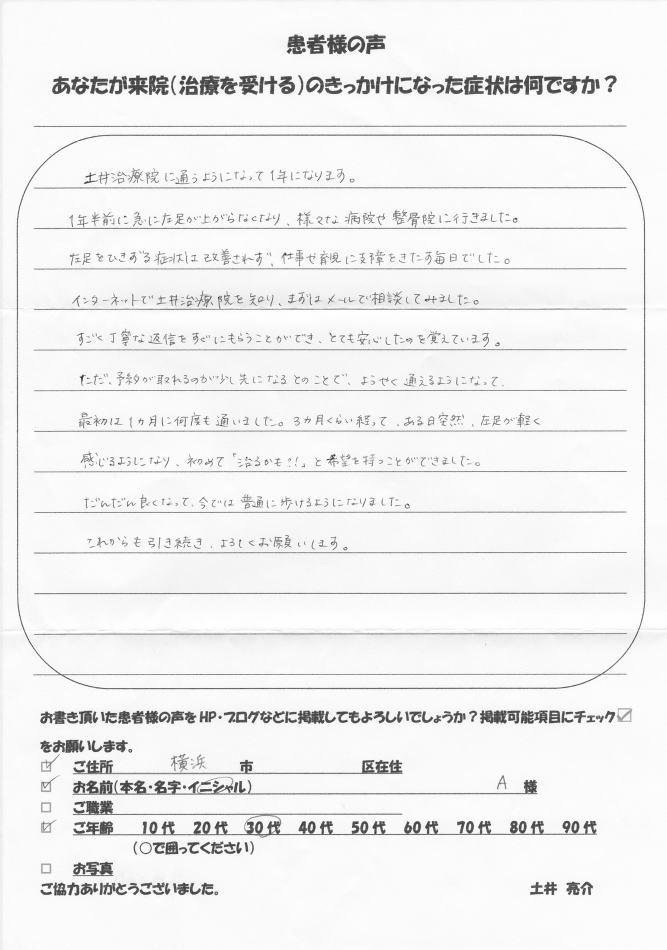 患者様の声
あなたが来院(治療を受ける)のきっかけになった症状は何ですか?
土井治療院に通うようになって1年になります。
1年半前に急に左足が上がらなくなり、様々な病院や整骨院に行きました。
左足をひきずる症状は改善されず、仕事や育児に支障をきたす毎日でした。
インターネットで土井治療院を知り、まずはメールで相談してみました。
すごく丁寧な返信をすぐにもらうことができ、とても安心したのを覚えています。
ただ、予約が取れるのが少し先になるとのことで、ようやく通えるようになって、
最初は1カ月に何度も通いました。3カ月くらい経って、ある日突然、左足が軽く
感じるようになり、初めて「治るかも?!」と希望を持つことができました。
だんだん良くなって、今では普通に歩けるようになりました。
これからも引き続き、よろしくお願いします。
お書き頂いた患者様の声をHP・ブログなどに掲載してもよろしいでしょうか?掲載可能項目にチェック☑
をお願いします。
☑ ご住所 横浜 市 区在住
☑ お名前(本名・名字・イニシャル) A 様
□ ご職業
☑ ご年齢 10代 20代 30代 40代 50代 60代 70代 80代 90代
(○で囲ってください)
□ お写真
ご協力ありがとうございました。 土井 亮介